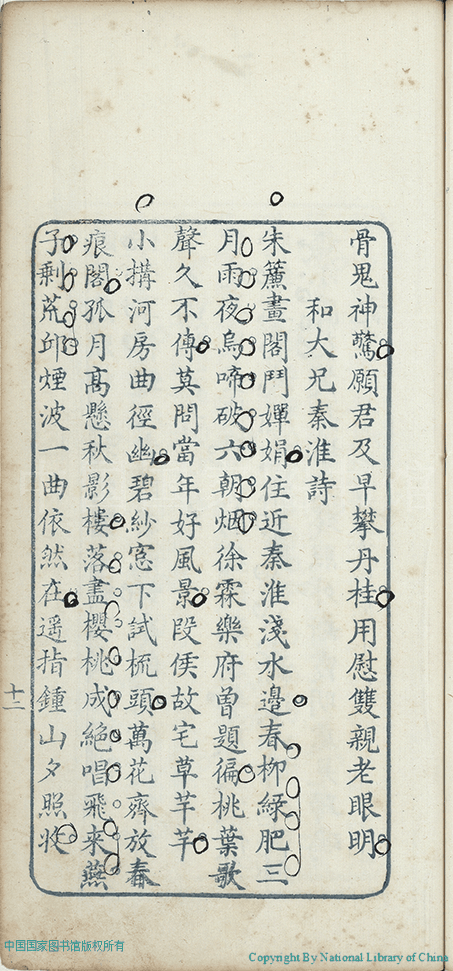 骨鬼神驚願君及早攀丹桂用慰雙親老眼明
和大兄秦淮詩
朱簾畫閣鬥嬋娟住近秦淮淺水邊春柳綠肥三
月雨夜烏啼破六朝烟徐霖樂府曾題徧桃葉歌
聲久不傳莫問當年好風景段侯故宅草芊芊
小搆河房曲徑幽碧紗窓下試梳頭萬花齊放春
痕閣孤月高懸秋影樓落盡櫻桃成絕唱飛來燕
子剩荒邱煙波一曲依然在遥指鍾山夕照收
十二
中国国家图书馆版权所有
Copyright By National Library of China